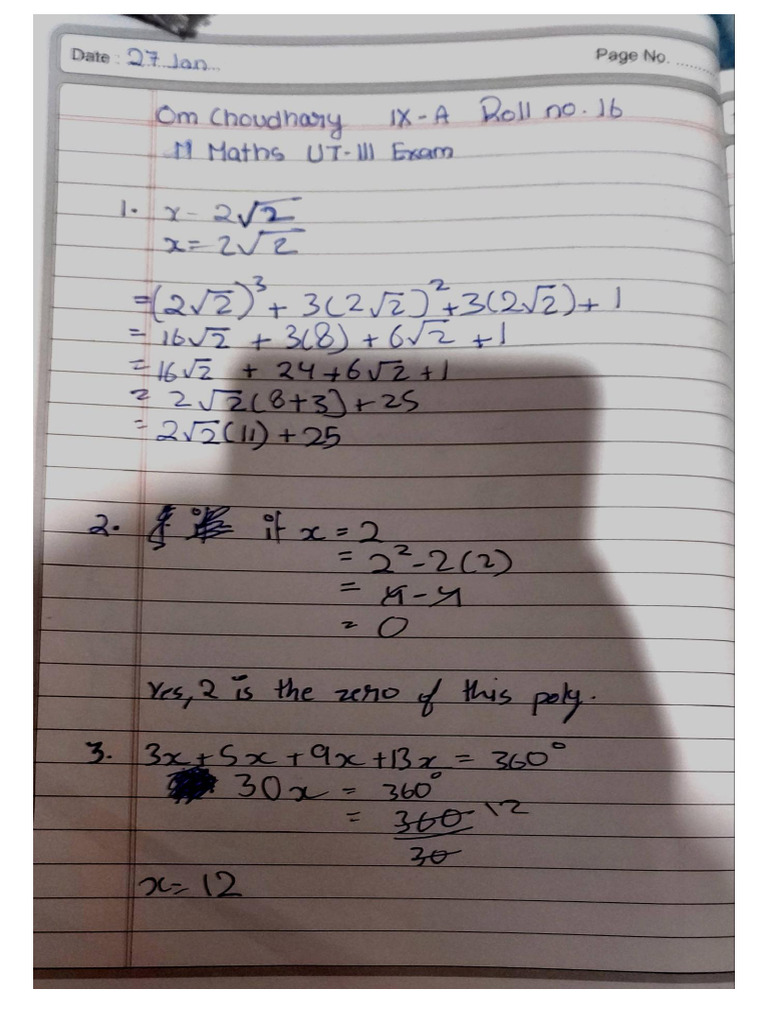 Date : 27 Jan...
Page No. ........
Om Choudhary IX-A Roll no. 16
Maths UT-III Exam
1. x - 2√2
x = 2√2
=(2√2)³ + 3(2√2)² + 3(2√2) + 1
= 16√2 + 3(8) + 6√2 + 1
= 16√2 + 24 + 6√2 + 1
= 2√2(8+3) + 25
= 2√2(11) + 25
2. if x = 2
= 2² - 2(2)
= 4 - 4
= 0
Yes, 2 is the zero of this poly.
3. 3x + 5x + 9x + 13x = 360°
30x = 360°
= 360 12
30
x = 12